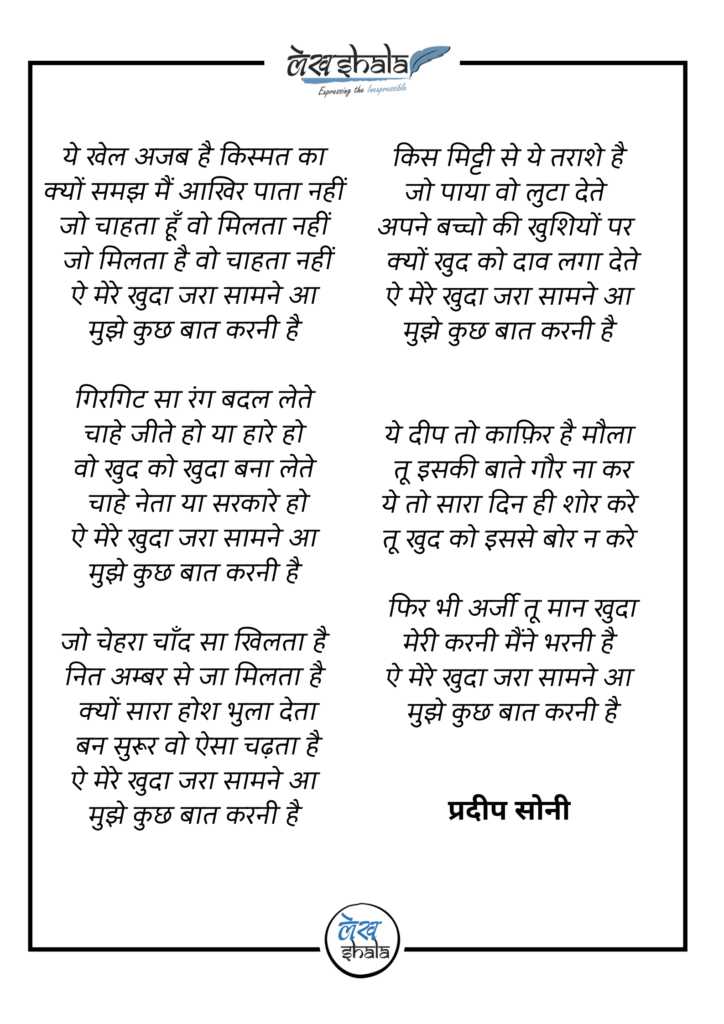 लेखshala
Expressing the Inexpressible
ये खेल अजब है किस्मत का
क्यों समझ मैं आखिर पाता नहीं
जो चाहता हूँ वो मिलता नहीं
जो मिलता है वो चाहता नहीं
ऐ मेरे खुदा जरा सामने आ
मुझे कुछ बात करनी है
गिरगिट सा रंग बदल लेते
चाहे जीते हो या हारे हो
वो खुद को खुदा बना लेते
चाहे नेता या सरकारे हो
ऐ मेरे खुदा जरा सामने आ
मुझे कुछ बात करनी है
जो चेहरा चाँद सा खिलता है
नित अम्बर से जा मिलता है
क्यों सारा होश भुला देता
बन सुरूर वो ऐसा चढ़ता है
ऐ मेरे खुदा जरा सामने आ
मुझे कुछ बात करनी है
किस मिट्टी से ये तराशे है
जो पाया वो लुटा देते
अपने बच्चो की खुशियों पर
क्यों खुद को दाव लगा देते
ऐ मेरे खुदा जरा सामने आ
मुझे कुछ बात करनी है
ये दीप तो काफ़िर है मौला
तू इसकी बाते गौर ना कर
ये तो सारा दिन ही शोर करे
तू खुद को इससे बोर न करे
फिर भी अर्जी तू मान खुदा
मेरी करनी मैंने भरनी है
ऐ मेरे खुदा जरा सामने आ
मुझे कुछ बात करनी है
प्रदीप सोनी
लेख
shala